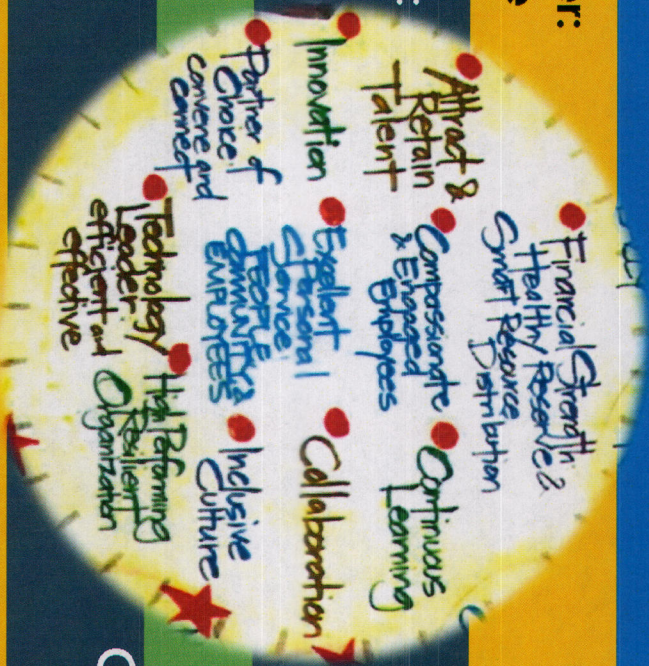 er:
Financial Strength:
Healthy Reserve &
Smart Resource
Distribution
Attract &
Retain
Talent
Compassionate
& Engaged
Employees
Continuous
Learning
Innovation
Excellent
Personal
Service:
PEOPLE
COMMUNITY &
EMPLOYEES
Collaboration
Partner of
Choice:
convene and
connect
Inclusive
Culture
Technology
Leader:
efficient and
effective
High Performing
Resilient
Organization